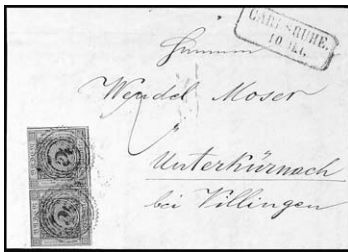 CARLSRUHE.
Herrn
Wendel Moser
Unterkürnach
bei Villingen